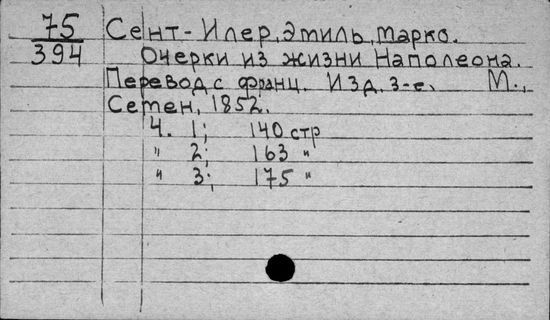 75
394
Сент-Илер, Эмиль, Марко.
Очерки из жизни Наполеона.
Перевод с франц. Изд. 3-е. М.,
Семен, 1852.
Ч. 1; 140 стр
" 2; 163 "
" 3; 175 "